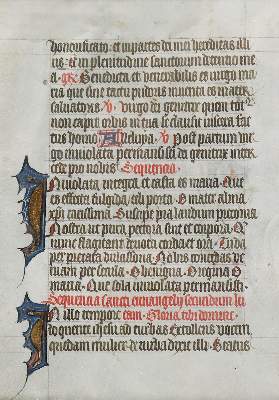 honorificato. et in partes dei mei hereditas illi
us. et in plenitudine sanctorum detentio me
a. gr. Benedicta et venerabilis es virgo ma
ria que sine tactu pudoris inventa es mater
salvatoris v virgo dei genitrix quem tot
non capit orbis in tua se clausit viscera fac
tus homo Alleluya. v Post partum vir
go inviolata permansisti dei genitrix inter
cede pro nobis Sequencia
Inviolata integra et casta es maria. Que
es effecta fulgida celi porta. O mater alma
xpi carissima. Suscipe pia laudum preconia
Nostra ut pura pectora sint et corpora. Que
nunc flagitant devota corda et ora. Tu da
per precata dulcisona. Nobis concedas ve
niam per secula. O benigna. O regina O
maria. Que sola inviolata permansisti.
Sequencia sancti evangelii secundum lu
In illo tempore cam. Gloria tibi domine.
loquente ihesu ad turbas Extollens vocem
quedam mulier de turba dixit illi. Beatus